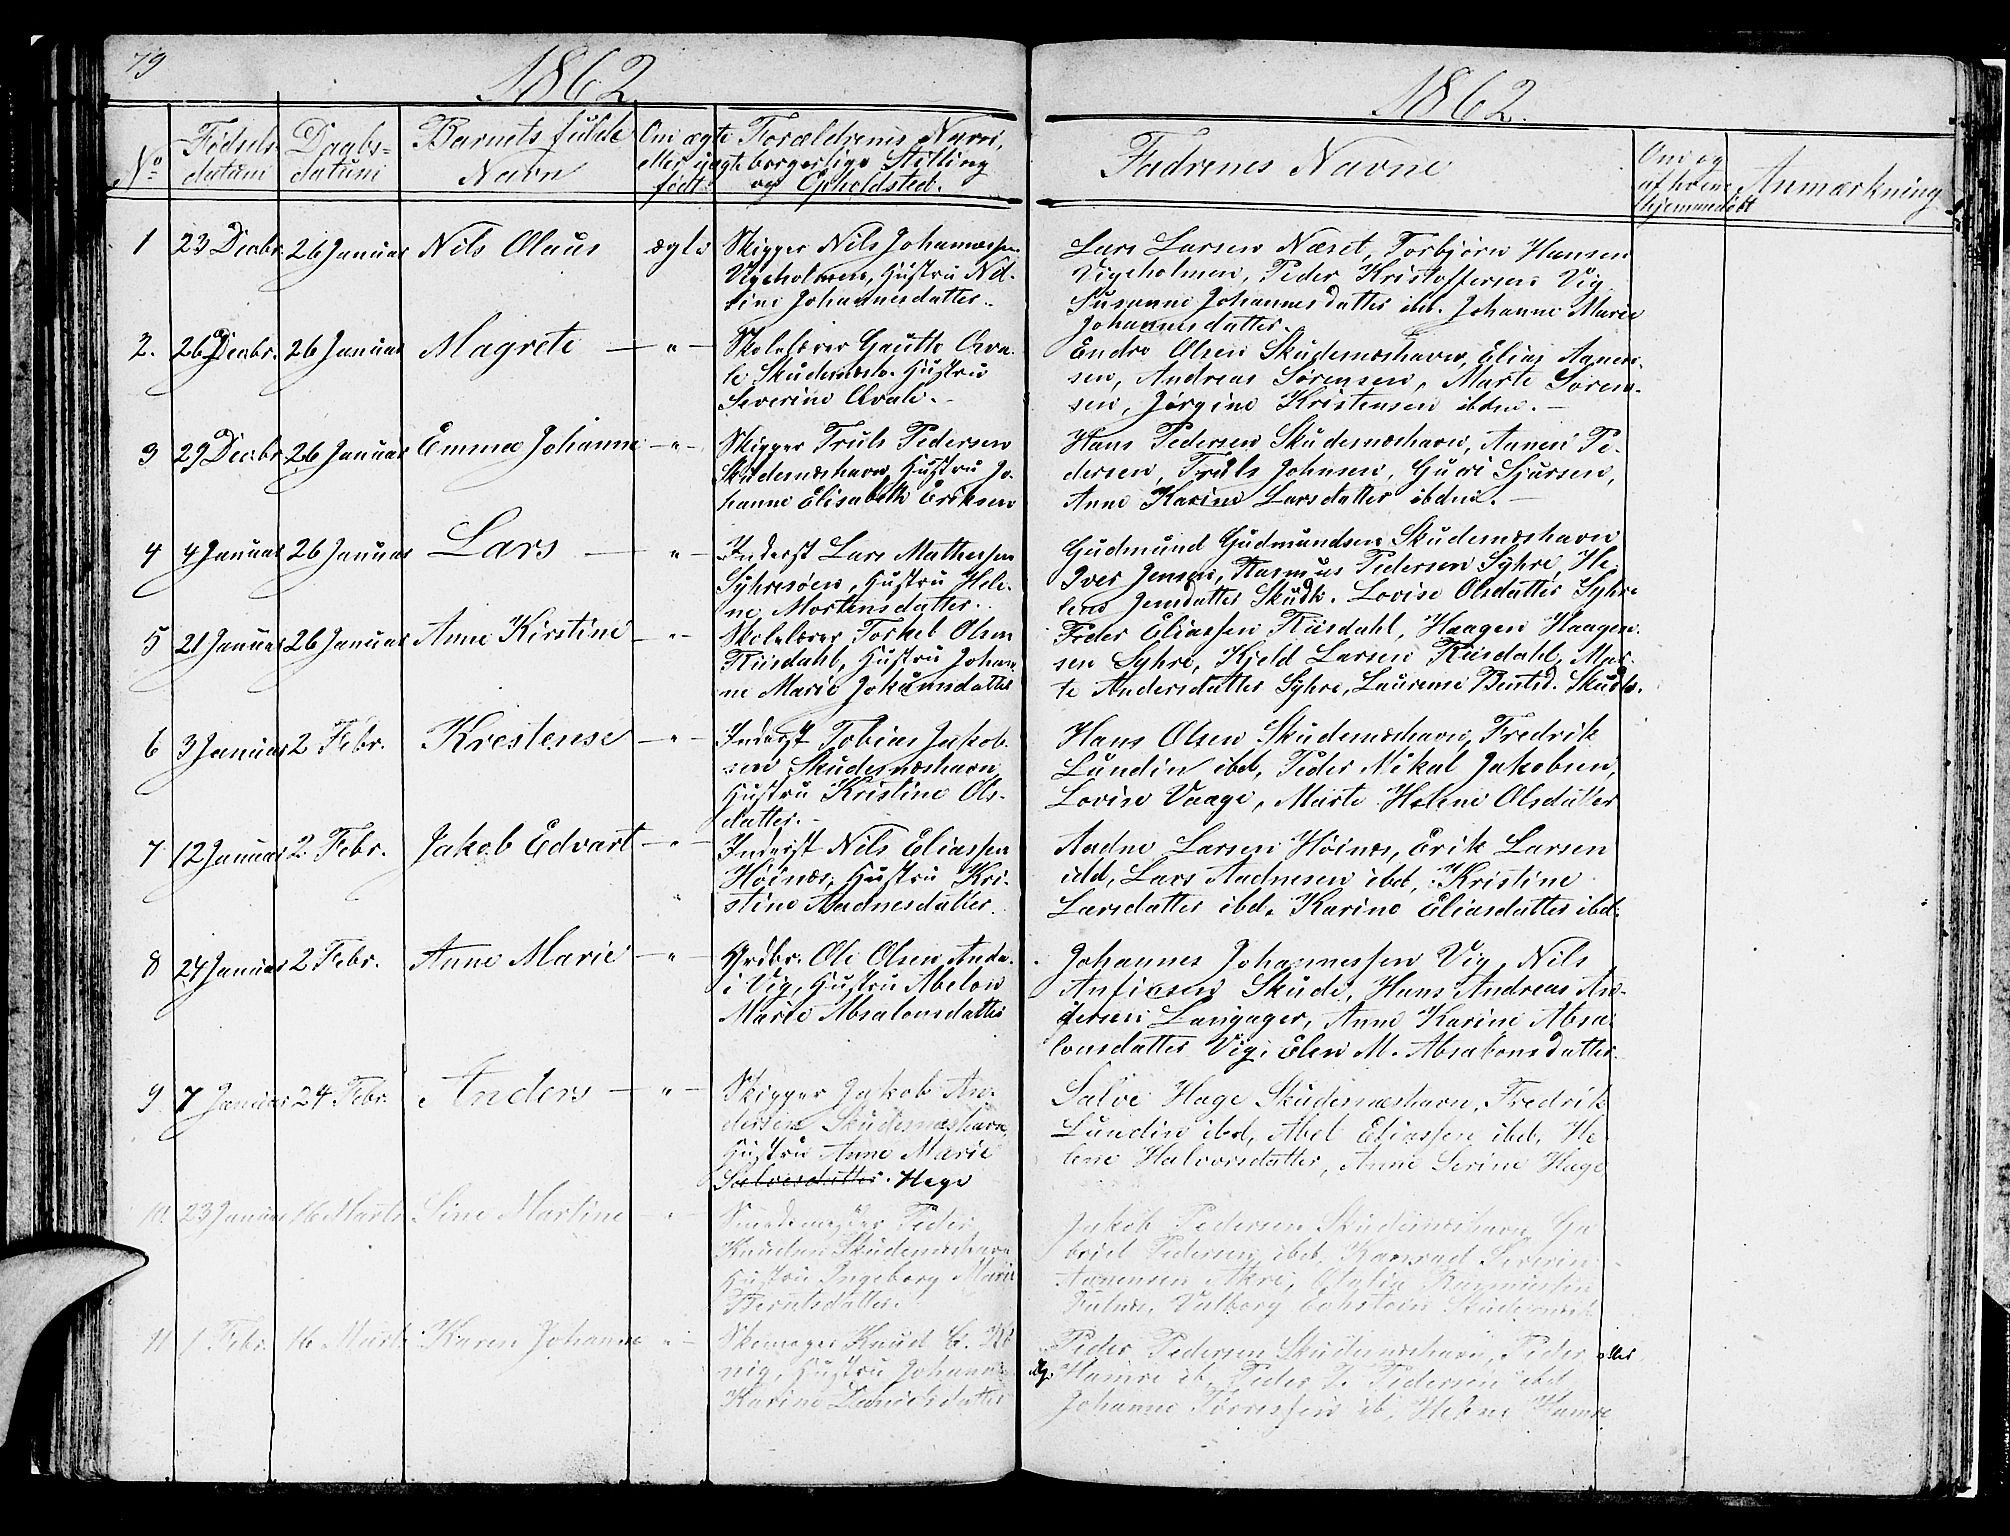 79
1862
1862.
No
Fødsels datum
Daabs= datum
Barnets fulde Navn
Om ægte eller uægte født.
Forældrenes Navn, borgerlige Stilling og Opholdsted.
Fadrenes Navne
Om og af hvem hjemmedøbt
Anmærkning
1 23 Decbr. 26 Januar Nils Olaus ægte
Skipper Nils Johannessen
Vigeholmen, Hustru
Johannesdatter.
Lars Larsen Næset, Torbjørn Hansen
Vigeholmen, Peder Kristoffersen Vig
Susanne Johannesdatter ibd. Johanne Marie
Johannesdatter.
2. 26 Decbr. 26 Januar Magrete — " —
Skolelærer Gautte Qva-
le Skudesnæsh. Hustru
Severine Qvale.
Endre Olsen Skudesnæshavn, Elias Aanen-
sen, Andreas Sørensen, Marte Søren-
sen, Jørgine Kristensen ibdm. —
3 29 Decbr. 26 Januar Emma Johanne — " —
Skipper Truls Pedersen
Skudesnæshavn, Hustru Jo-
hanne Elisabeth Eriksen
Hans Pedersen Skudesnæshavn, Aanen Pe-
dersen, Truls Johnsen, Guri Sjursen,
Anne Karine Larsdatter ibdm. —
4 4 Januar 26 Januar Lars — " —
Inderst Lars Mathessen
Syhresøen, Hustru Hele-
ne Mortensdatter.
Gudmund Gudmundsen Skudesnæshavn
Iver Jensen, Rasmus Pedersen Syhre, He-
lene Jensdatter Skudh. Lovise Olsdatter Syhre
5 21 Januar 26 Januar Anne Kirstine — " —
Skolelærer Torkel Olsen
Riisdahl, Hustru Johan-
ne Marie Jokumsdatter
Peder Eliassen Riisdahl, Haagen Haagen-
sen Syhre, Kjeld Larsen Riisdahl, Mar-
te Andersdatter Syhre, Laurense Bentsd. Skudes.
6 3 Januar 2 Febr. Krestense — " —
Inderst Tobias Jakob-
sen Skudesnæshavn
Hustru Kristine Ols-
datter. -
Hans Olsen Skudesnæshavn, Fredrik
Lundin ibd, Peder Nikal Jakobsen,
Lovise Vaage, Marte Helene Olsdatter
7 12 Januar 2 Febr. Jakob Edvart — " —
Inderst Nils Eliassen
Høinæs, Hustru Kri-
stine Aadnesdatter.
Aadne Larsen Høinæs, Erik Larsen
ibd, Lars Aadnesen ibd, Kristine
Larsdatter ibd. Karine Eliasdatter ibd.
8 24 Januar 2 Febr. Anne Marie — " —
Grdbr. Ole Olsen
i Vig, Hustru Abelon
Marie Absalonsdatter
Johannes Johannessen Vig, Nils
Skude, Hans Andreas An-
dersen Langager, Anne Karine Absa-
lonsdatter Vig, Elen M. Absalonsdatter.
9. 7 Januar 24 Febr. Anders — " —
Skipper Jakob An-
dersen Skudesnæshavn,
Hustru Anne Marie
Salvesdatter. Hage
Salve Hage Skudesnæshavn, Fredrik
Lundin ibd, Abel Eliassen ibd, He-
lene Halvorsdatter, Anne Serine Hage
10. 23 Januar 16 Marts Sine Martine — " —
Smedemester Peder
Knudsen Skudesnæshavn
Hustru Ingeborg Marie
Berntsdatter.
Jakob Pedersen Skudesnæshavn, Ga-
briel Pedersen ibd, Konrad Severin
Aanensen Akre, Otalia Rasmussen
Falnæs, Valborg Echstein Skudesnæsh.
11 1 Febr. 16 Marts Karen Johanne — " —
Skomager Knud
vig, Hustru Johanne
Karine Davidsdatter
Peder Pedersen Skudesnæshavn, Peder
Hamre ib, Peder J. Pedersen ibd
Johanne Tørressen ib, Helene Hamre